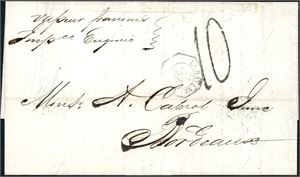 vapeur francais
Imp.ce Eugenie
10
Monsr A. Cabrol June
Bordeaux